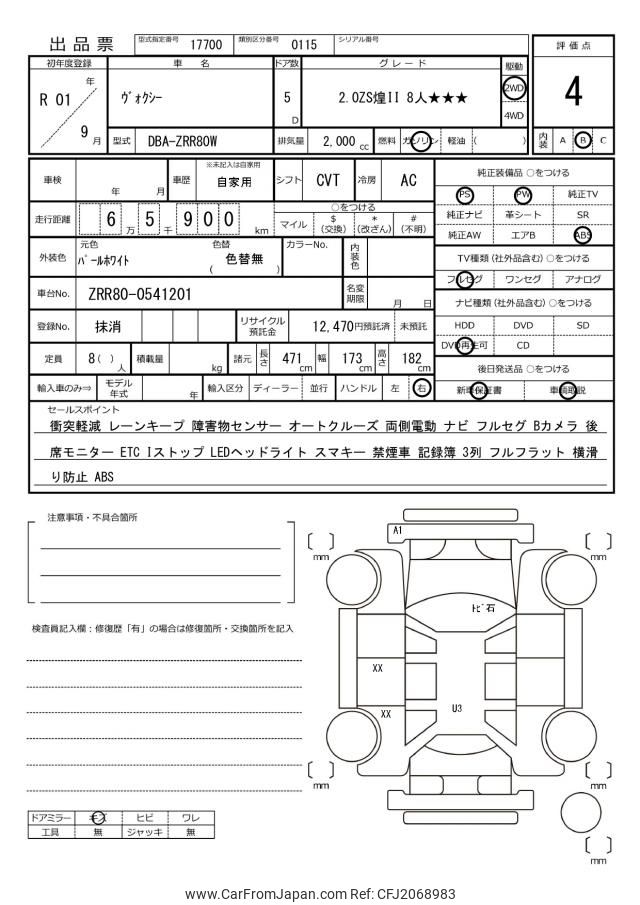 出品票 型式指定番号 17700 類別区分番号 0115 シリアル番号
評価点
4
内装 A B C
初年度登録 車名 ドア数 グレード 駆動
R 01 年 9 月
ヴォクシー 5 D 2.0ZS煌II 8人★★★ 2WD 4WD
型式 DBA-ZRR80W 排気量 2,000 cc 燃料 ガソリン 軽油 ( )
車検 年 月 車歴 ※未記入は自家用 自家用 シフト CVT 冷房 AC
走行距離 6 万 5 千 9 0 0 km
○をつける
マイル $ (交換) * (改ざん) # (不明)
外装色 元色 パールホワイト 色替 ( 色替無 ) カラーNo. 内装色
車台No. ZRR80-0541201 名変期限 月 日
登録No. 抹消 リサイクル預託金 12,470円預託済 未預託
定員 8 ( ) 人 積載量 kg 諸元 長さ 471 cm 幅 173 cm 高さ 182 cm
輸入車のみ⇒ モデル年式 年 輸入区分 ディーラー 並行 ハンドル 左 右
純正装備品 ○をつける
PS PW 純正TV
純正ナビ 革シート SR
純正AW エアB ABS
TV種類 (社外品含む) ○をつける
フルセグ ワンセグ アナログ
ナビ種類 (社外品含む) ○をつける
HDD DVD SD
DVD再生可 CD
後日発送品 ○をつける
新車保証書 車輌取説
セールスポイント
衝突軽減 レーンキープ 障害物センサー オートクルーズ 両側電動 ナビ フルセグ Bカメラ 後
席モニター ETC Iストップ LEDヘッドライト スマキー 禁煙車 記録簿 3列 フルフラット 横滑
り防止 ABS
注意事項・不具合箇所
検査員記入欄：修復歴「有」の場合は修復箇所・交換箇所を記入
A1
mm
mm
トビ石
XX
XX
U3
mm
mm
mm
ドアミラー キズ ヒビ ワレ
工具 無 ジャッキ 無
www.CarFromJapan.com Ref: CFJ2068983